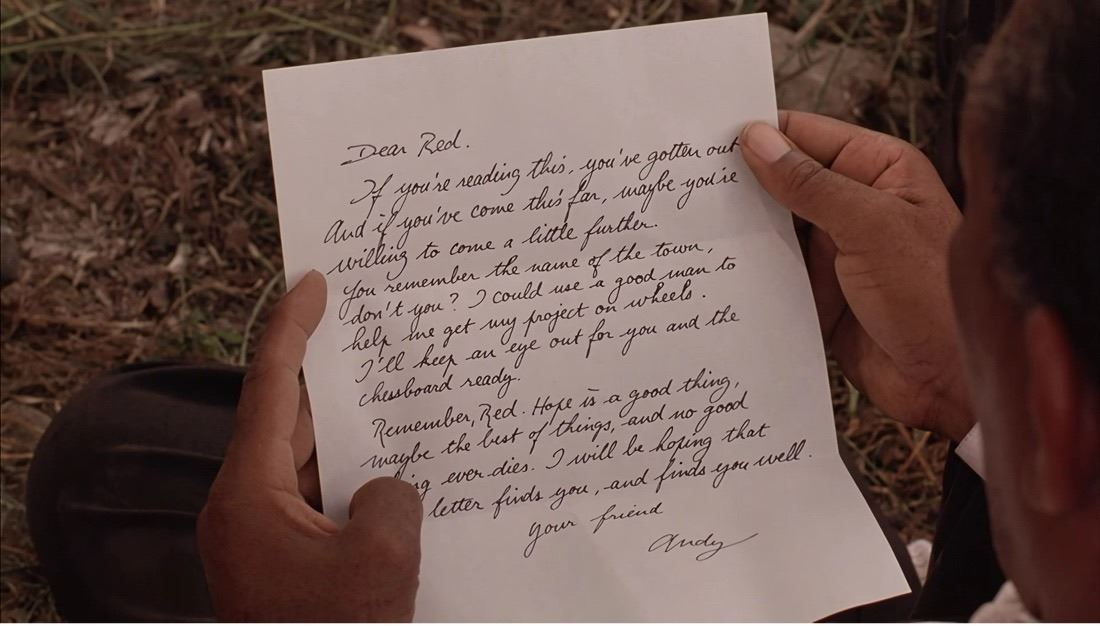 Dear Red.
If you're reading this, you've gotten out
And if you've come this far, maybe you're
willing to come a little further.
You remember the name of the town,
don't you? I could use a good man to
help me get my project on wheels.
I'll keep an eye out for you and the
chessboard ready.
Remember, Red. Hope is a good thing,
maybe the best of things, and no good
ever dies. I will be hoping that
letter finds you, and finds you well.
Your friend
Andy